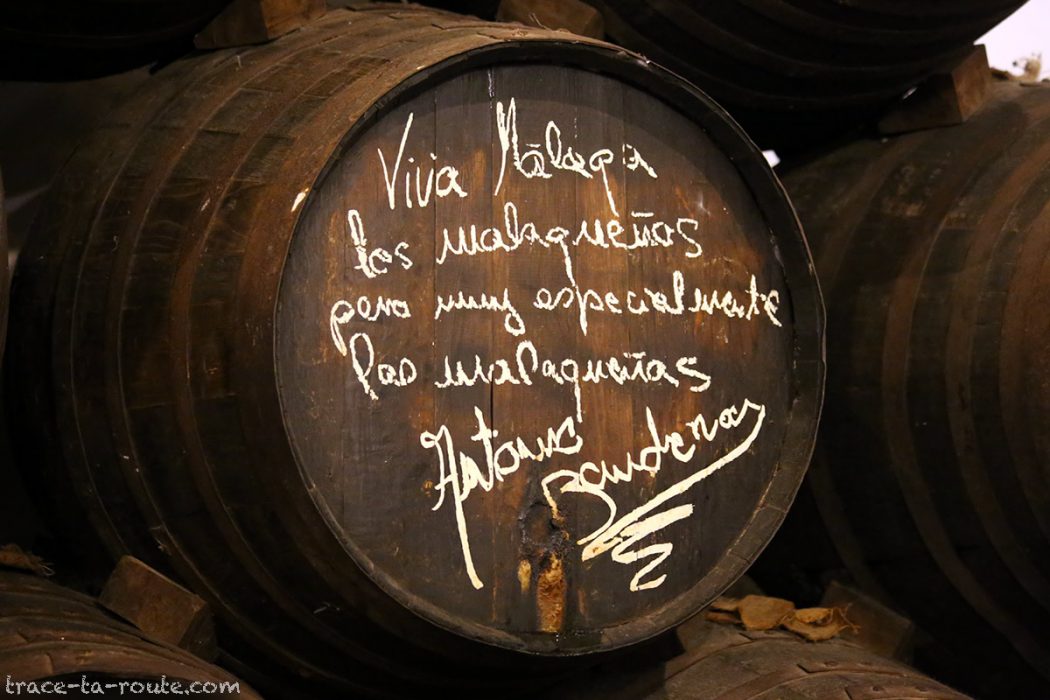 Viva Málaga
los malagueños
pero muy especialmente
las malagueñas
Antonio
Banderas
trace-ta-route.com